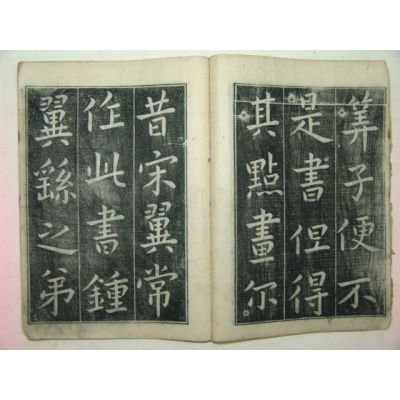 筭子便不
是書但得
其點畫尔
昔宋翼常
作此書鍾
翼繇之弟